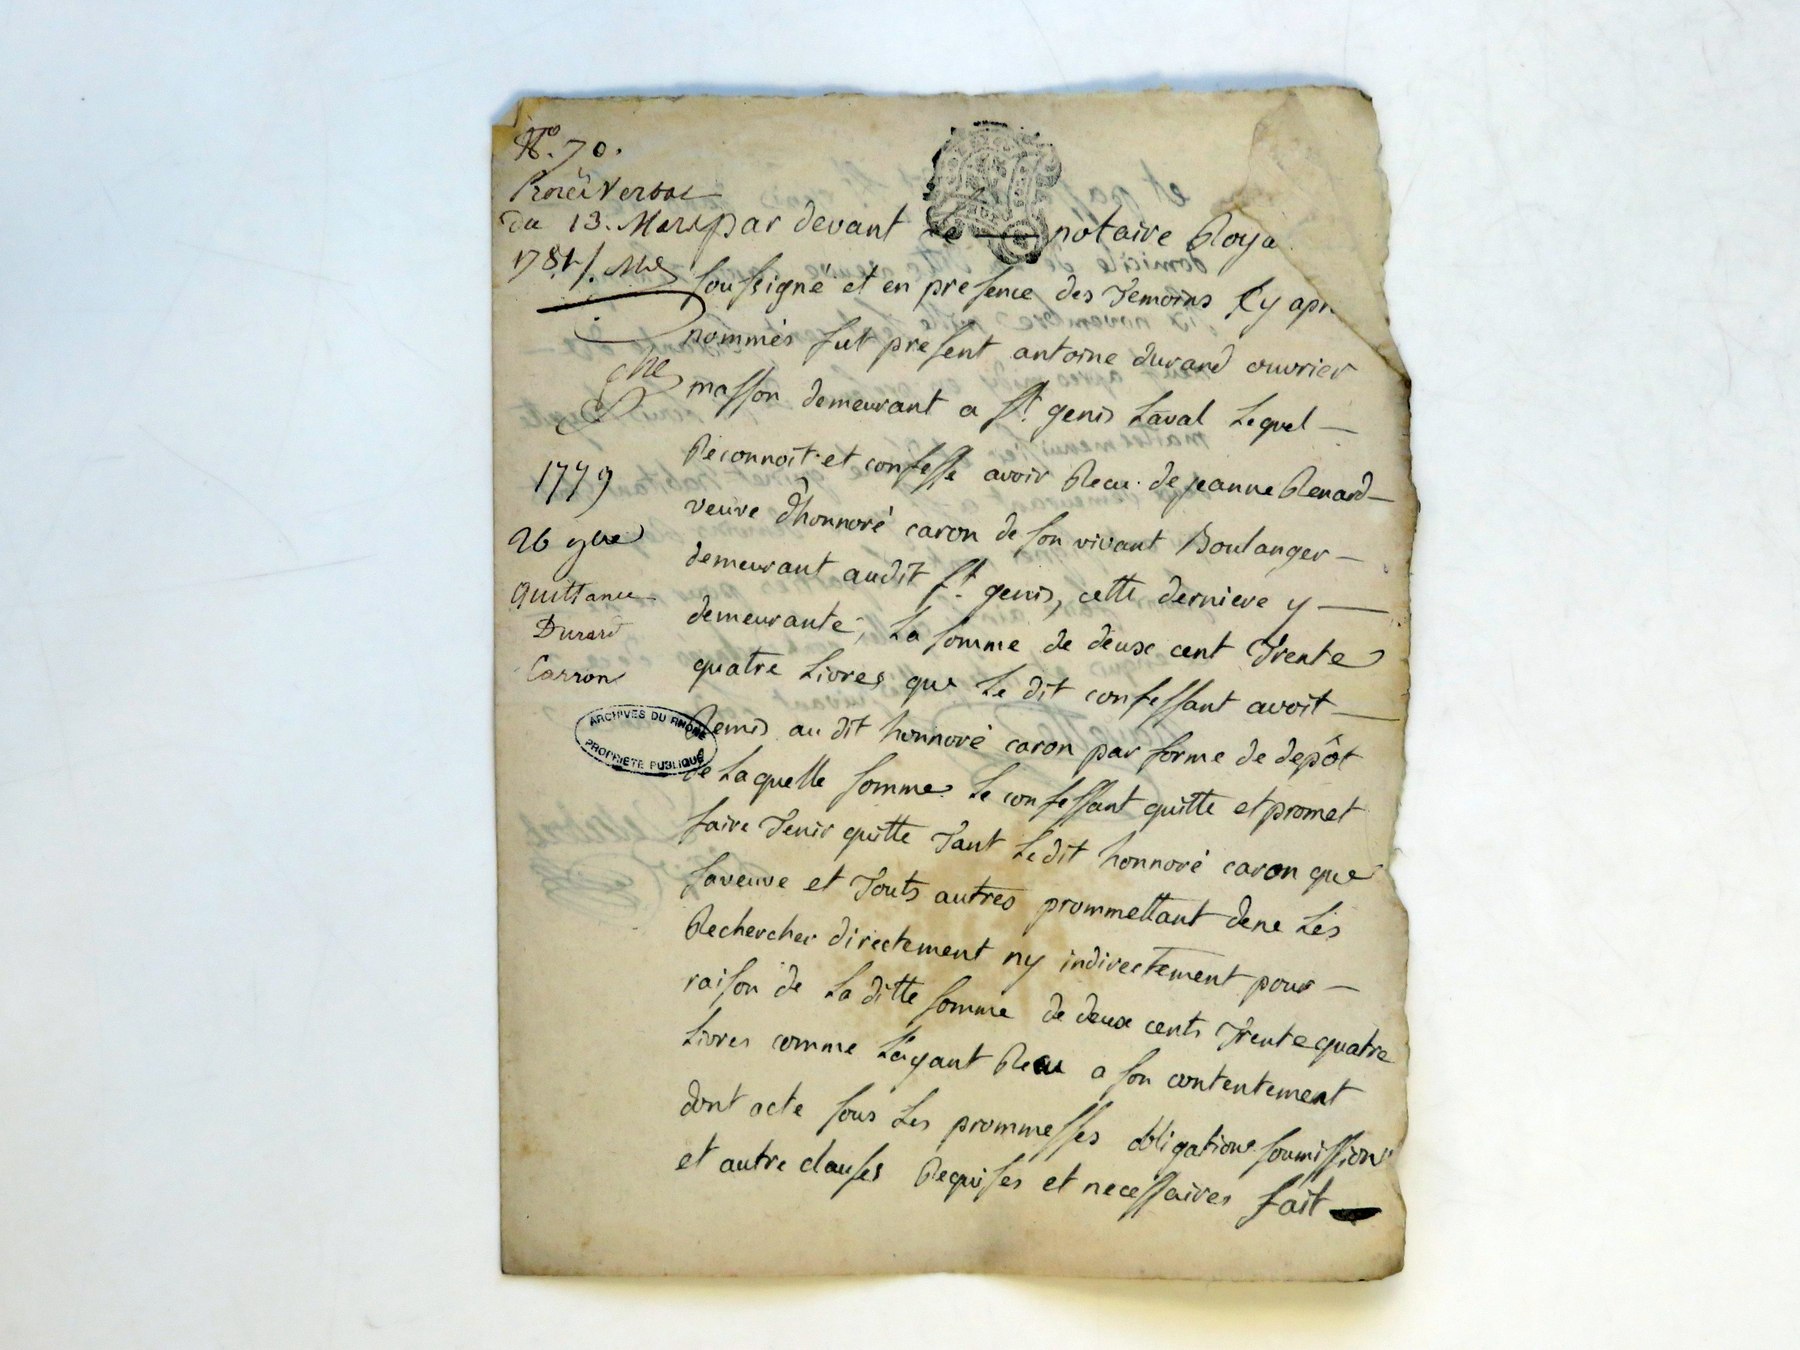 N.o 70.
Procès Verbal
du 13. Mars
1781 /.
1779
26 9bre
quittance
Durand
Carron
ARCHIVES DU RHÔNE
PROPRIÉTÉ PUBLIQUE
par devant Le — notaire Roya
soussigné et en presence des Temoins Cy apr
nommés fut present antoine durand ouvrier
masson demeurant a St. genis Laval Lequel —
Reconnoit et confesse avoir Recu de jeanne Renard —
veuve d'honnoré caron de son vivant Boulanger —
demeurant audit St. genis, cette derniere y —
demeurante, La somme de deux cent Trente
quatre Livres que Le dit confessant avoit —
Remis au dit honnoré caron par forme de depôt
de Laquelle somme Le confessant quitte et promet
faire Tenir quitte Tant Ledit honnoré caron que
saveuve et Touts autres prommettant dene Les
Rechercher directement ny indirectement pour —
raison de La ditte somme de deux cents Trente quatre
Livres comme L'ayant Recu a son contentement
dont acte sous Les prommesses obligations soumissions
et autre clauses Requises et necessaires fait —